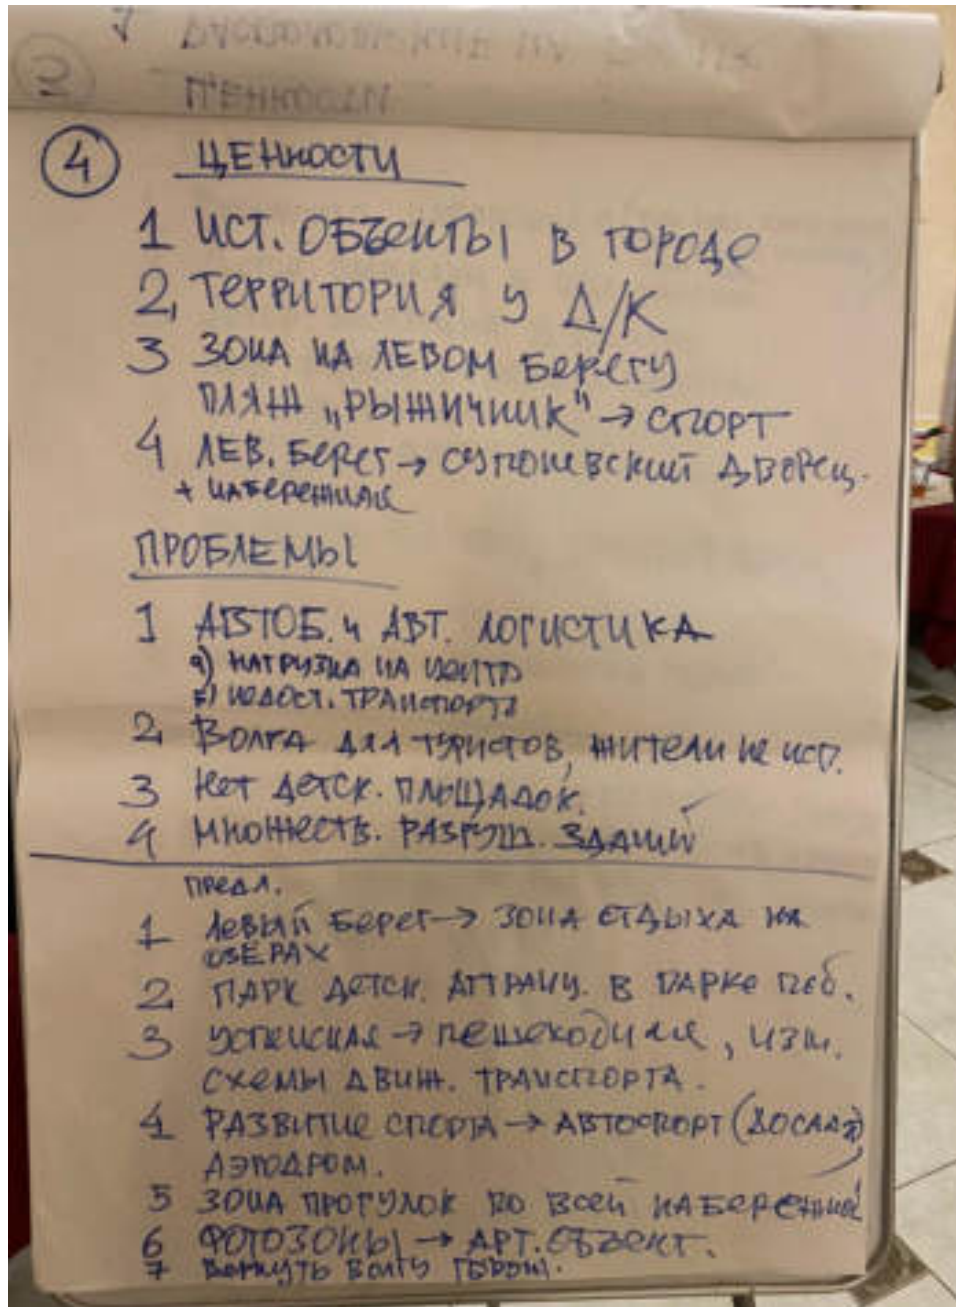 ЦЕННОСТИ
④ ЦЕННОСТИ
1 ИСТ. ОБЪЕКТЫ В ГОРОДЕ
2, ТЕРРИТОРИЯ У Д/К
3 ЗОНА НА ЛЕВОМ БЕРЕГУ
ПЛЯЖ „РЫЖИЧНИК" → СПОРТ
4 ЛЕВ. БЕРЕГ → СУПОНЕВСКИЙ ДВОРЕЦ.
+ НАБЕРЕЖНАЯ
ПРОБЛЕМЫ
1 АВТОБ. И АВТ. ЛОГИСТИКА
а) НАГРУЗКА НА ЦЕНТР
б) НЕДОСТ. ТРАНСПОРТА
2 ВОЛГА ДЛЯ ТУРИСТОВ, ЖИТЕЛИ НЕ ИСП.
3 НЕТ ДЕТСК. ПЛОЩАДОК.
4 МНОЖЕСТВ. РАЗРУШ. ЗДАНИЙ
ПРЕДЛ.
1 ЛЕВЫЙ БЕРЕГ → ЗОНА ОТДЫХА НА
ОЗЕРАХ
2 ПАРК ДЕТСК. АТТРАКЦ. В ПАРКЕ ПОБ.
3 УСПЕНСКАЯ → ПЕШЕХОДНАЯ, ИЗМ.
СХЕМЫ ДВИЖ. ТРАНСПОРТА.
4 РАЗВИТИЕ СПОРТА → АВТОСПОРТ (ДОСААФ)
АЭРОДРОМ.
5 ЗОНА ПРОГУЛОК ПО ВСЕЙ НАБЕРЕЖНОЙ
6 ФОТОЗОНЫ → АРТ. ОБЪЕКТ.
7 ВЕРНУТЬ ВОЛГУ ГОРОЖ.